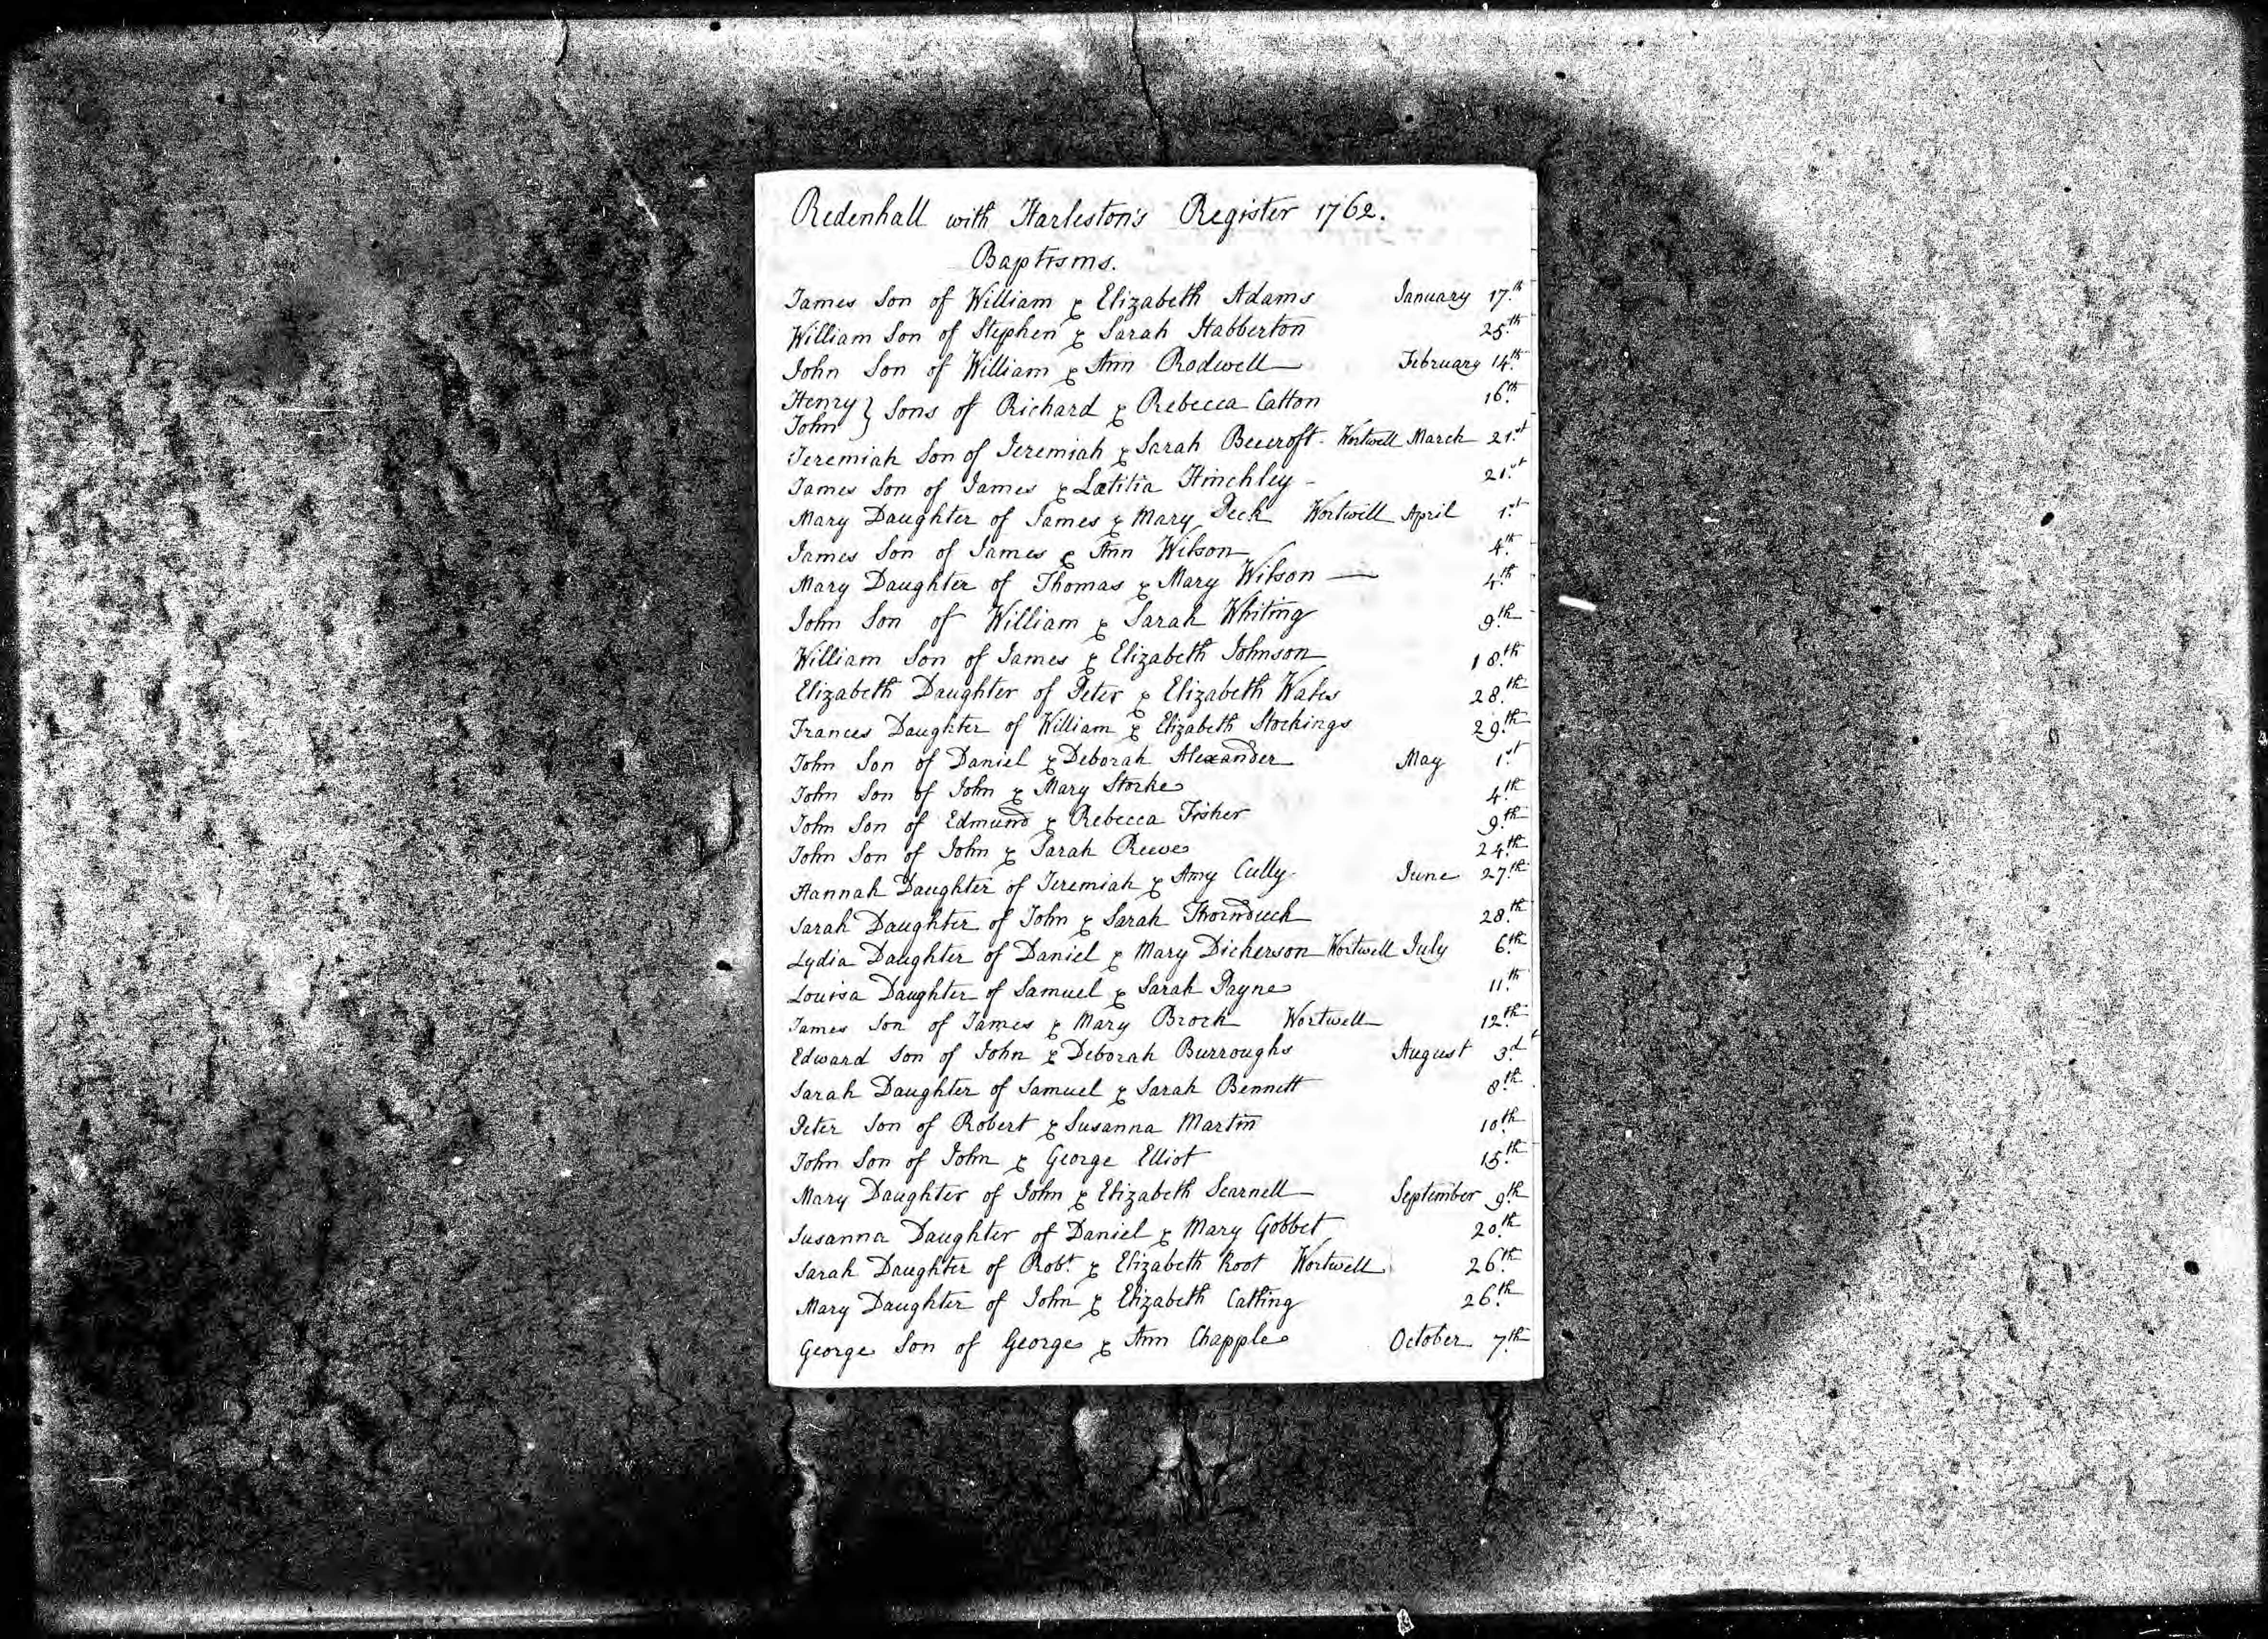 Redenhall with Harleston's Register 1762.
Baptisms.
James Son of William & Elizabeth Adams January 17th
William Son of Stephen & Sarah Habberton 25th
John Son of William & Ann Rodwell February 14th
Henry } Sons of Richard & Rebecca Catton 16th
John
Jeremiah Son of Jeremiah & Sarah Beecroft Wortwell March 21st
James Son of James & Lætitia Hinchley 21st
Mary Daughter of James & Mary Peck Wortwell April 1st
James Son of James & Ann Wilson 4th
Mary Daughter of Thomas & Mary Wilson 4th
John Son of William & Sarah Whiting 9th
William Son of James & Elizabeth Johnson 18th
Elizabeth Daughter of Peter & Elizabeth Wales 28th
Frances Daughter of William & Elizabeth Stockings 29th
John Son of Daniel & Deborah Alexander May 1st
John Son of John & Mary Storke 4th
John Son of Edmund & Rebecca Fisher 9th
John Son of John & Sarah Reeve 24th
Hannah Daughter of Jeremiah & Amy Cully June 27th
Sarah Daughter of John & Sarah Thornduck 28th
Lydia Daughter of Daniel & Mary Dickerson Wortwell July 6th
Louisa Daughter of Samuel & Sarah Payne 11th
James Son of James & Mary Brock Wortwell 12th
Edward Son of John & Deborah Burroughs August 3d
Sarah Daughter of Samuel & Sarah Bennett 8th
Peter Son of Robert & Susanna Martin 10th
John Son of John & George Elliot 15th
Mary Daughter of John & Elizabeth Scarnell September 9th
Susanna Daughter of Daniel & Mary Gobbet 20th
Sarah Daughter of Robt & Elizabeth Root Wortwell 26th
Mary Daughter of John & Elizabeth Catting 26th
George Son of George & Ann Chapple October 7th